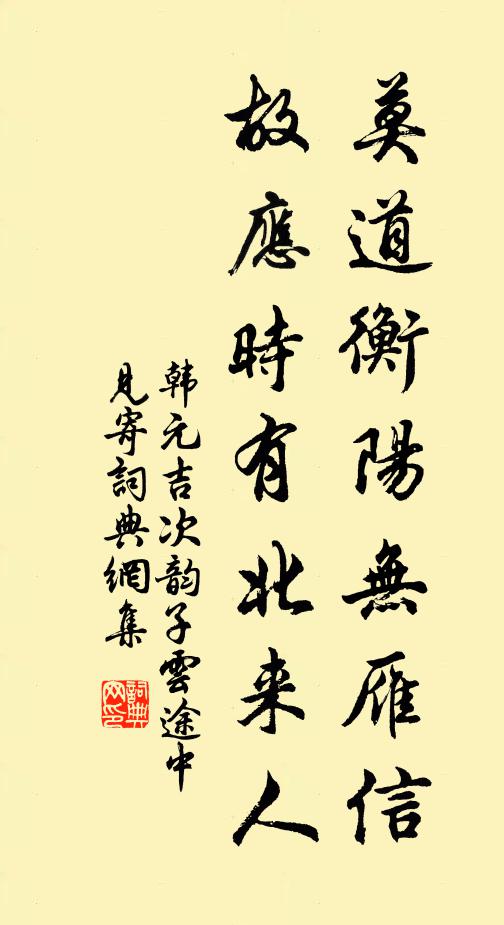 莫道衡陽無雁信
故應時有北来人
韩元吉次韵子雲途中
見寄詞典網集
詞典
网印